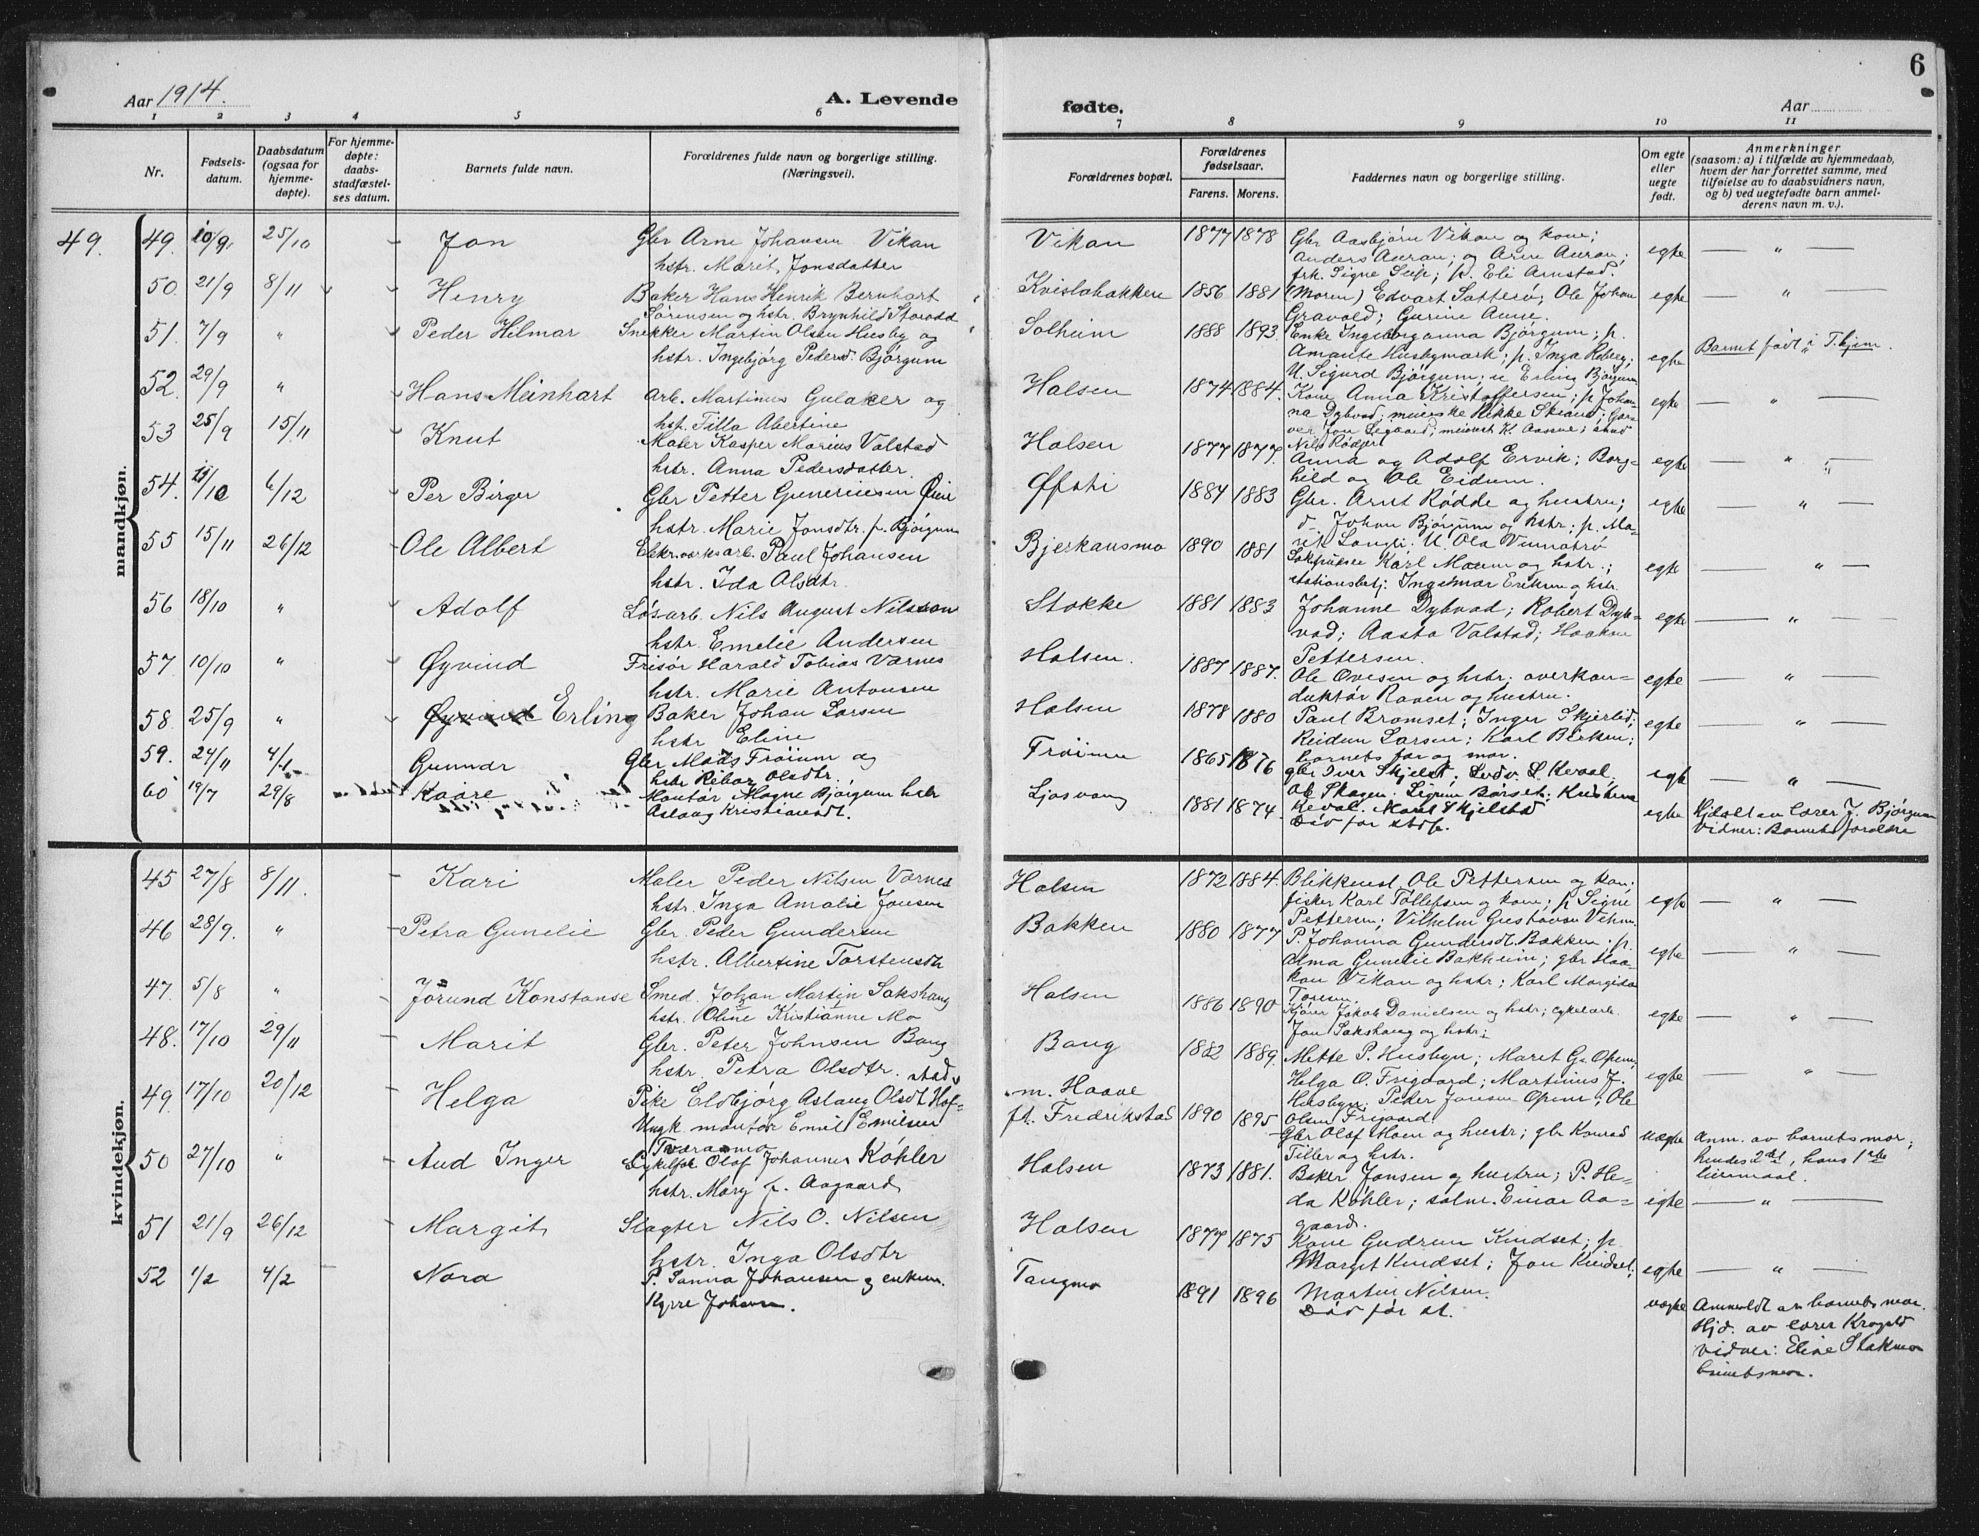 Aar 1914.
A. Levende
fødte.
Aar
6
1 2 3 4 5 6 7 8 9 10 11
Nr.
Fødsels-
datum.
Daabsdatum
(ogsaa for
hjemme-
døpte).
For hjemme-
døpte:
daabs-
stadfæstel-
ses datum.
Barnets fulde navn.
Forældrenes fulde navn og borgerlige stilling.
(Næringsvei).
Forældrenes bopæl.
Forældrenes
fødselsaar.
Farens. Morens.
Faddernes navn og borgerlige stilling.
Om egte
eller
uegte
født.
Anmerkninger
(saasom: a) i tilfælde av hjemmedaab,
hvem der har forrettet samme, med
tilføielse av to daabsvidners navn,
og b) ved uegtefødte barn anmel-
derens navn m. v.).
mandkjøn.
49. 49. 10/9. 25/10 Jon Gbr Arne Johansen Vikan
hstr. Marit Jonsdatter
Vikan 1877 1878 Gbr Aasbjørn Vikan og kone;
Anders Auran; og Arne Auran;
frk. Signe Seip; p. Eli Arnstad.
egte — " —
50. 21/9 8/11 Henry Baker Hans Henrik Bernhart
Sørensen og hstr. Brynhild
Kvislabakken 1856 1881 (Moren) Edvart Sætterø; Ole Johan
Gravold; Gurine Aune.
egte — " —
51. 7/9 " Peder Hilmar Snekker Martin Olsen Husby og
hstr. Ingebjørg Pedersd. Bjørgum
Solheim 1888 1893. Enke Ingeborganna Bjørgum; p.
Amante Husbymark; p. Inga Roberg;
U. Sigurd Bjørgum; u Erling Bjørgum
egte Barnet født i T.hjem.
52. 29/9 " Hans Meinhart Arb. Martinus Gulaker og
hst. Tilla Abertine
Halsen 1874 1884. Kone Anna Kristoffersen; p Johan-
na Dybvad; meierske Rikke
egte — " —
53 25/9 15/11 Knut Maler Kasper Marius Valstad
hstr. Anna Pedersdatter
Halsen 1877 1877. Anna og Adolf Ervik; Borg-
hild og Ole Eidum.
egte — " —
54. 6/12 Per Birger Gbr Petter Guneriusen Øien
hstr. Marie Jonsdtr. f. Bjørgum
Øfsti 1884 1883 Gbr. Arnt Rødde og hustru;
d— Johan Bjørgum og hstr; p. Ma-
rit Langli. U. Ola Vinnatrø
egte — " —
55 15/11 26/12 Ole Albert Elekr.værksarb. Paul Johansen
hstr. Ida Olsdtr.
Bjerkansmo 1890 1881 Karl Moum og hstr.;
stationsbetj. Ingemar Eriksen og hstr.
egte — " —
56 18/10 " Adolf Løsarb. Nils August Nilsson
hstr. Emelie Andersen
Stokke 1881 1883 Johanne Dybvad; Robert Dyb-
vad; Aasta Valstad; Haakon
Pettersen.
egte — " —
57. 10/10 " Øyvind Frisør Harald Tobias Værnes
hstr. Marie Antonsen
Halsen. 1887 1887. Ole Ovesen og hstr; overkon-
duktør Raaen og hustru.
egte — " —
58. 25/9 " Øyvind Erling Baker Johan Larsen
hstr Eline
Halsen 1878 1880 Paul Bromset; Inger Skjerlid;
Reidun Larsen; Karl
barnets far og mor.
egte — " —
59. 24/11 4/1 Gunnar Gbr Mads Frøium og
hstr Olsdtr.
Frøium 1865 1876 gbr Iver Skjelst; Ludv. L. Kvaal;
Ole Skogen. Sigrun Børset;
egte — " —
60 19/7 29/8 Kaare Montør Magne Bjørgum hstr
Aslaug Kristiansdt.
Ljosvang 1881 1874. Død før stdf.
egte Hjdøbt av lærer J. Bjørgum
Vidner: Barnets forældre
kvindekjøn.
45 27/8 8/11. Kari Maler Peder Nilsen Værnes
hstr. Inga Amalie Jonsen
Halsen 1872 1884. Blikkensl. Ole Pettersen og kon;
fisker Karl Tollefsen og kone; p Signe
Pettersen; Vilhelm Gustavsen
egte — " —
46 28/9. " Petra Gunelie Gbr. Peder Gundersen
hstr. Albertine Torstensdtr
Bakken 1880 1877 P. Johanna Gundersdt. Bakken; p.
Alma Gunelie Bakheim; gbr Haa-
kon Vikan og hstr; Karl
egte — " —
47. 5/8 " Jörund Konstanse Smed. Johan Martin Sakshaug
hstr. Oline Kristianne Mo
Halsen 1886 1890 Kjører Jakob Danielsen og hstr; cykelarb.
Jon Sakshaug og hstr;
egte — " —
48. 17/10 29/11 Marit Gbr. Peter Johnsen Bang
hstr. Petra Olsdtr.
Bang 1882 1889. Mette P. Husbyn; Maret G. Opem;
Helga O. Frigaard; Martinus J.
Husbyn; Peder Jonsen Opem; Ole
Olsen Frigaard.
egte — " —
49. 17/10 20/12 Helga Pike Eldbjørg Aslaug Olsdt. Hof-
stad
Ungk. montør Emil Emilsen
Tværaamo
m. Haave
ft. Fredrikstad 1890 1895 Gbr Olaf Moen og hustr; gbr Konrad
Tiller og hstr.
uægte Anm. av barnets mor;
hendes 2det, hans 1ste
leiermaal.
50 27/10 " Aud Inger Cykelfbr Olaf Johannes Köhler
hstr. Mary f. Aagaard,
Halsen 1873 1881. Baker Jonsen og hustru; P. He-
da Köhler; salm. Einar Aa-
gaard.
egte — " —
51 21/9 26/12 Margit Slagter Nils O. Nilsen
hstr. Inga Olsdtr
Halsen 1877 1875 Kone Gudrun Kindset; p.
Margit Kindset; Jon Kindset;
Martin Nilsen.
egte — " —
52 1/2 4/2 Nora P. Sanna Johansen og
Kyrre Johans.
Tangmo 1891 1896 Død før st.
uægte Anmeldt av barnets mor.
Hjd. av lærer
vidner: Eline Stokmo
barnetsmor.